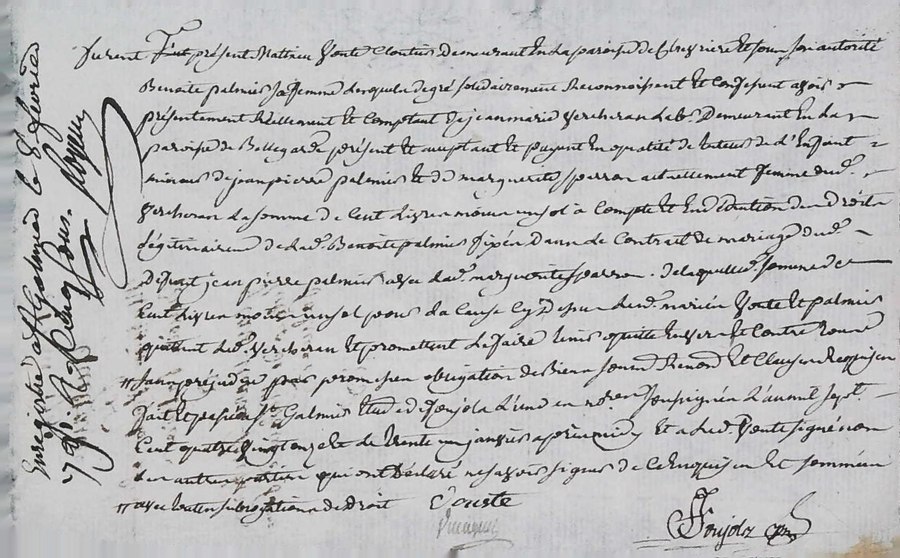 furent Fut présent Mathieu Vente Cloutier demeurant En la paroisse de Chevrière Et sous son autorité
Benoite palmier sa femme Lesquels de gré solidairement Reconnoissent Et Confessent avoir
présentement Réellement Et Comptant de jean marie Vercheran Lab. Demeurant En la
paroisse de Bellegarde présent Et acceptant Et payant En qualité de tuteur de d'Enfant
mineurs de jean pierre palmier Et de marguerite sparron actuellement femme dud.
Vercheran La somme de Cent Livres moins un sol à Compte Et En déduction des Droits
légitimaires de Lad. Benoite palmier fixés Dans le Contrait de mariage dud.
Défunt jean pierre palmier avec Lad. marguerite sparron. de laquelle somme de
Cent Livres moins un sol pour La Cause Cy Dessus Lesd. mariés Vente Et palmier
quittent Led. Vercheran Et promettent Le faire tenir quitte Envers Et Contre tous
sans préjudice par promesse obligation de Biens soumis Renond Et Clauses Requises
fait Et passé à St. Galmier Etude d. Fonjolz L'un des no.res soussignés L'an mil sept
Cent quatre Vingt sept Le Trente un janvier après midy Et a Led. Vente signé non
les autres parties qui ont Déclaré ne savoir signer de Ce Enquises Et sommées
avec toutes subrogations de Droit Vouste
Fonjolz
Enregistré a St Galmier le 8 fevrier
1787. Reçu dix sous.